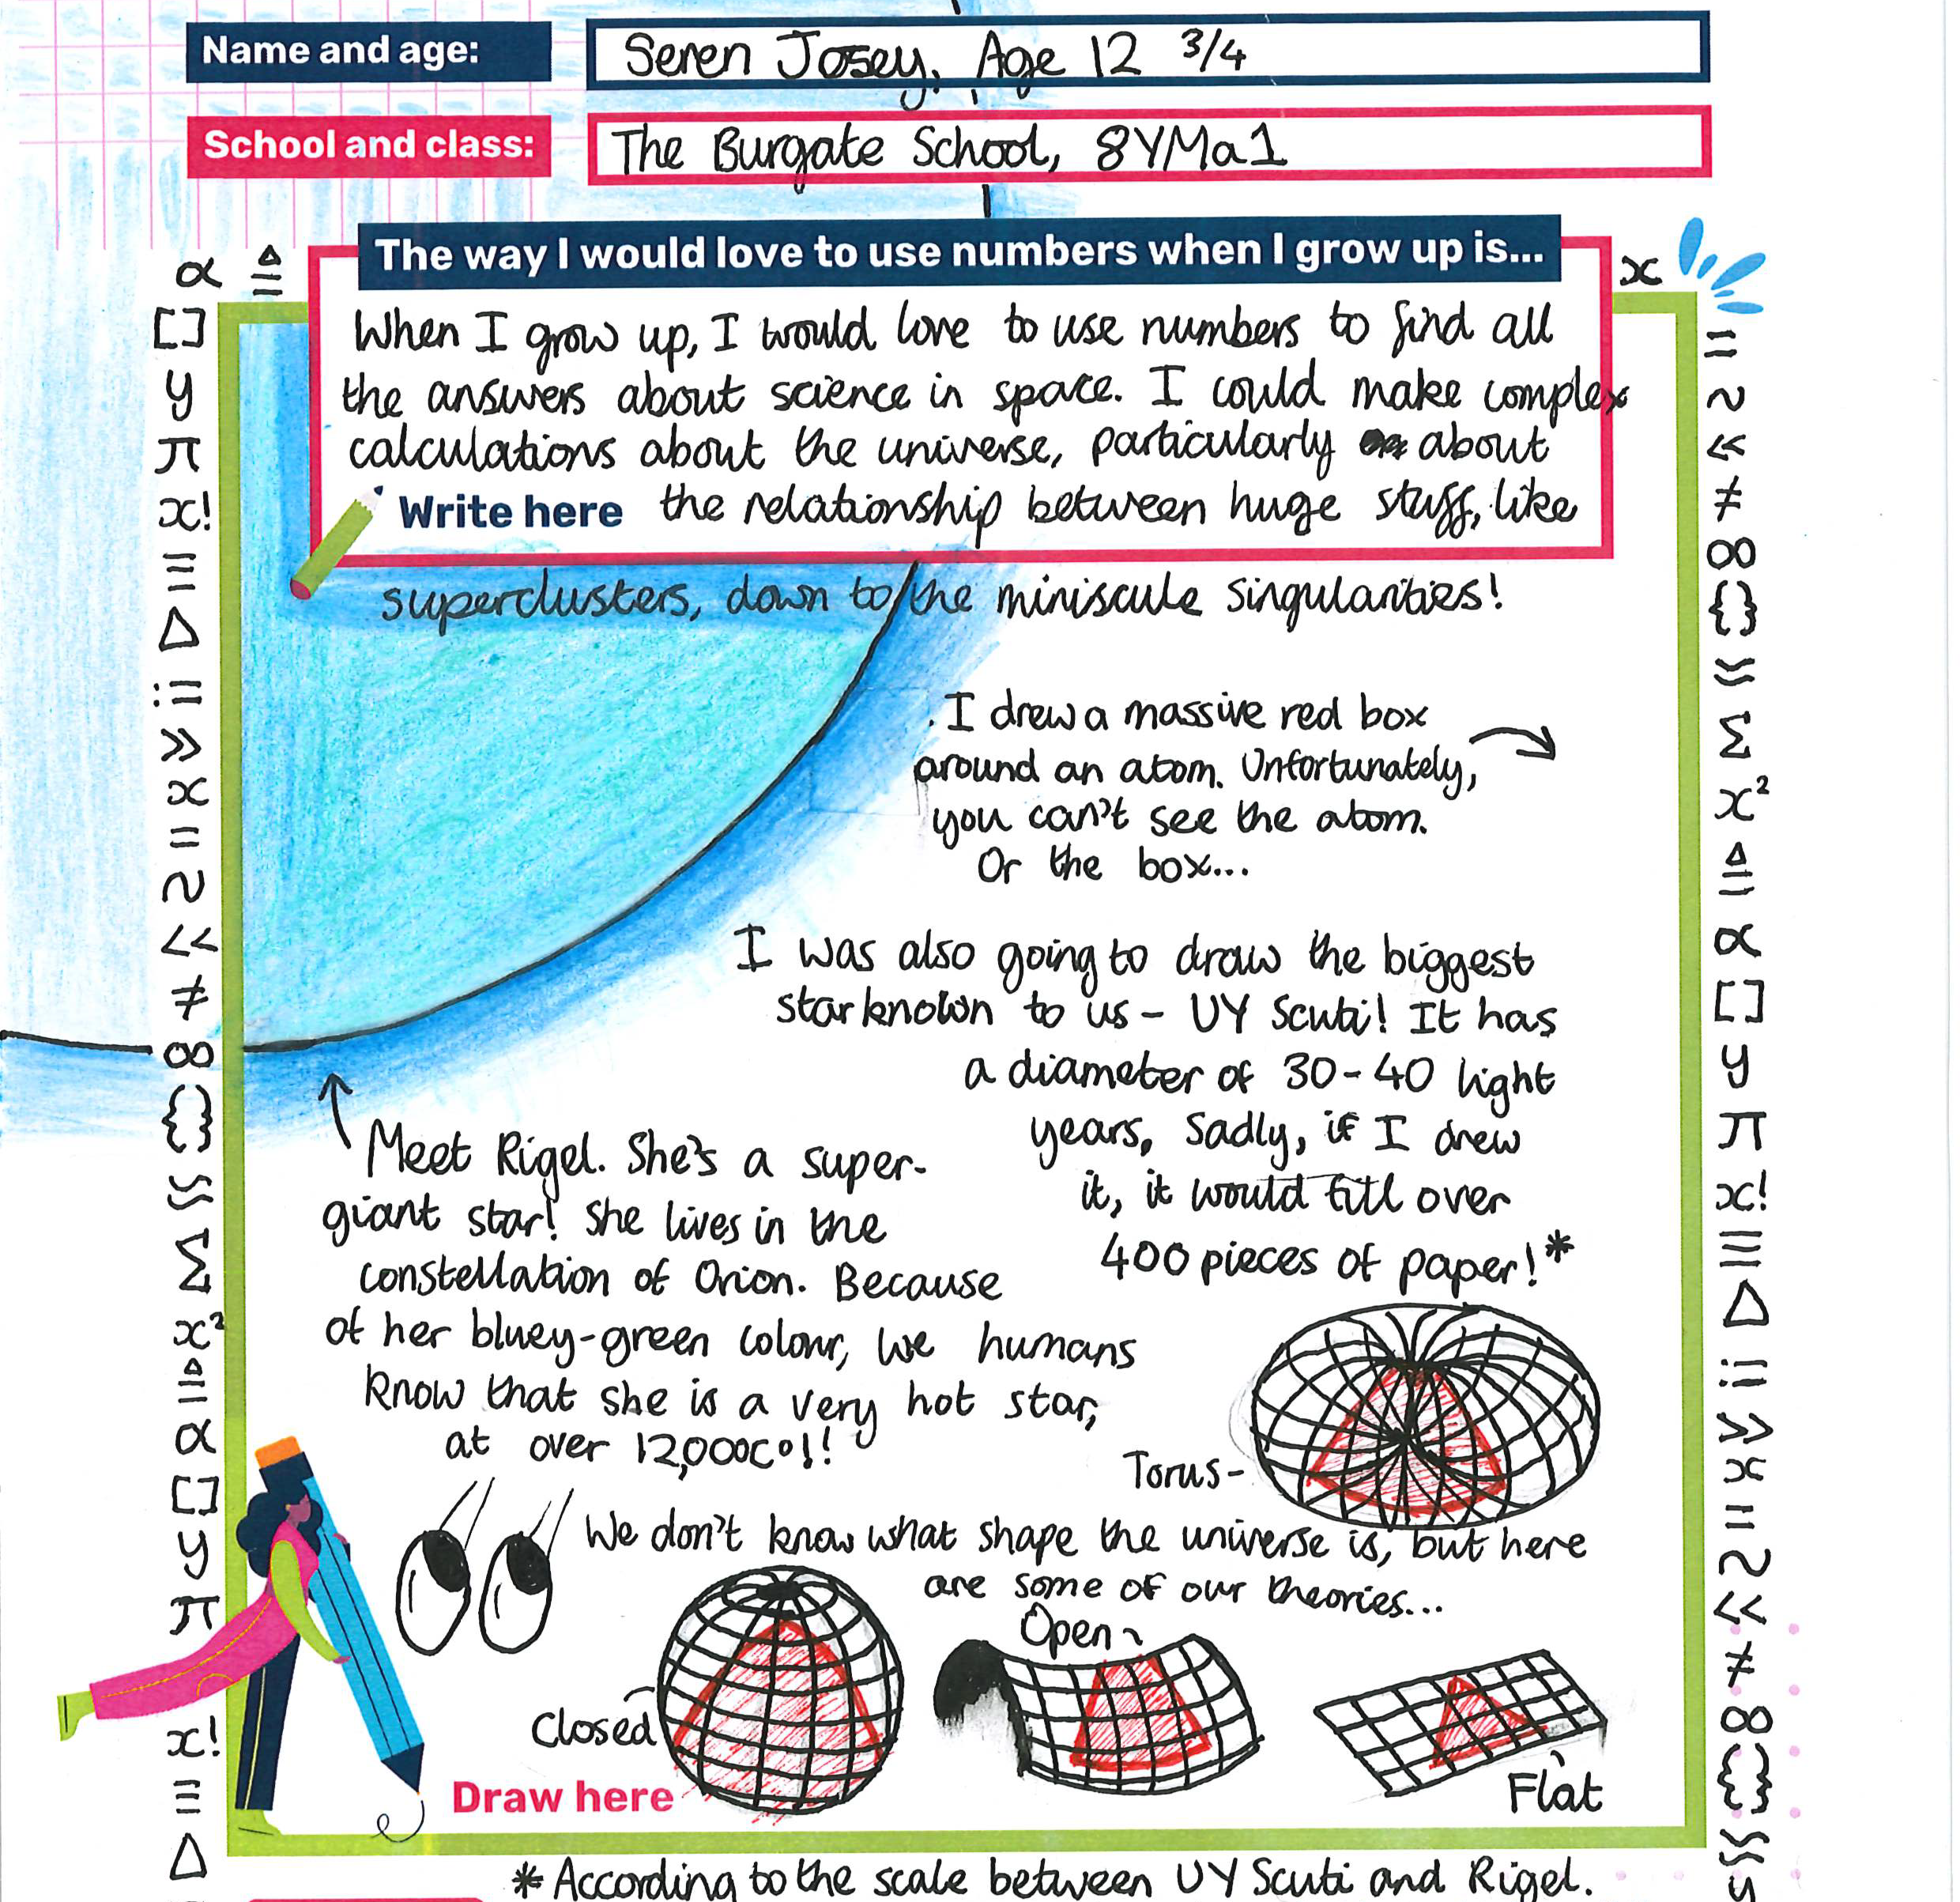 Name and age: Seren Josey, Age 12 3/4
School and class: The Burgate School, 8YMa1
The way I would love to use numbers when I grow up is...
When I grow up, I would love to use numbers to find all
the answers about science in space. I could make complex
calculations about the universe, particularly about
Write here the relationship between huge stuff, like
superclusters, down to the miniscule singularities!
I drew a massive red box
around an atom. Unfortunately,
you can't see the atom.
Or the box...
I was also going to draw the biggest
star known to us - UY Scuti! It has
a diameter of 30-40 light
years, Sadly, if I drew
it, it would fill over
400 pieces of paper!*
Meet Rigel. She's a super-
giant star! She lives in the
constellation of Orion. Because
of her bluey-green colour, we humans
know that she is a very hot star,
at over 12,000c°!!
Torus-
We don't know what shape the universe is, but here
are some of our theories...
Closed
Open
Flat
Draw here
*According to the scale between UY Scuti and Rigel.
α ≙
[]
y
π
x!
≡
Δ
≫
x
=
≪
≠
∞
{}
Σ
x²
≙
α
[]
y
π
x!
≡
Δ
x
=
≪
≠
∞
{}
Σ
x²
≙
α
[]
y
π
x!
≡
Δ
≫
x
=
≪
≠
∞
{}